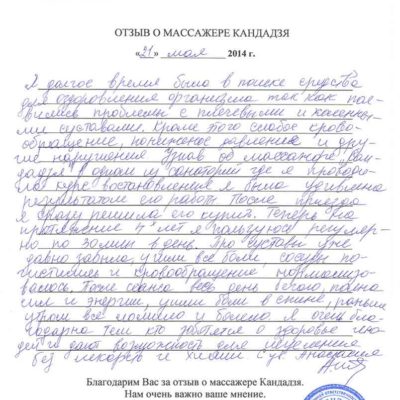 ОТЗЫВ О МАССАЖЕРЕ КАНДАДЗЯ
«21» мая 2014 г.
Я долгое время была в поиске средства
для оздоровления организма так как поя-
вились проблемы с плечевыми и коленны-
ми суставами. Кроме этого слабое крово-
обращение, пониженое давление и дру-
гие нарушения Узнав об массажоре "Кан-
дадзя" в одном из санатории где я проводи-
ла курс востановления я была удивлена
результатом его работы После приезда
я сразу решила его купит. Теперь на
протяжение 4 лет я пользуюсь регуляр-
но по 30 мин в день. Про суставы уже
давно забыла, ушли все боли, сосуды по-
чистились и кровообращение нормализо-
валось. После сеанса весь день бегаю, полна
сил и энергии, ушли боли в спине, раньше
утром все ломило и болело. Я очень бла-
годарна тем кто заботется о здоровье лю-
дей и дают возможность для исцеления
без лекарств и химии С ув Анастасия
Благодарим Вас за отзыв о массажере Кандадзя.
Нам очень важно ваше мнение.